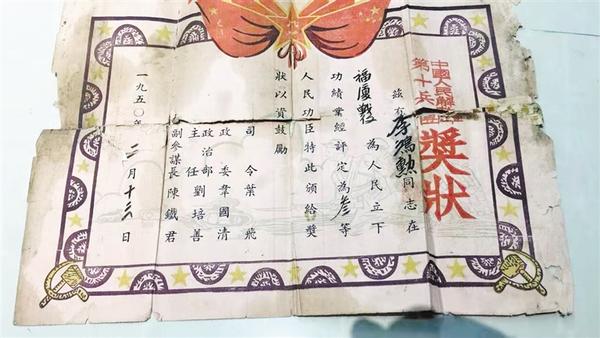 中國人民解放軍
第十兵團
獎狀
茲有李鴻勳同志在
福廈戰役為人民立下
功績業經評定為叄等
人民功臣特此頒給獎
狀以資鼓勵
司令葉飛
政委韋國清
政治部
主任劉培善
副參謀長陳鐵君
一九五〇年二月十 日